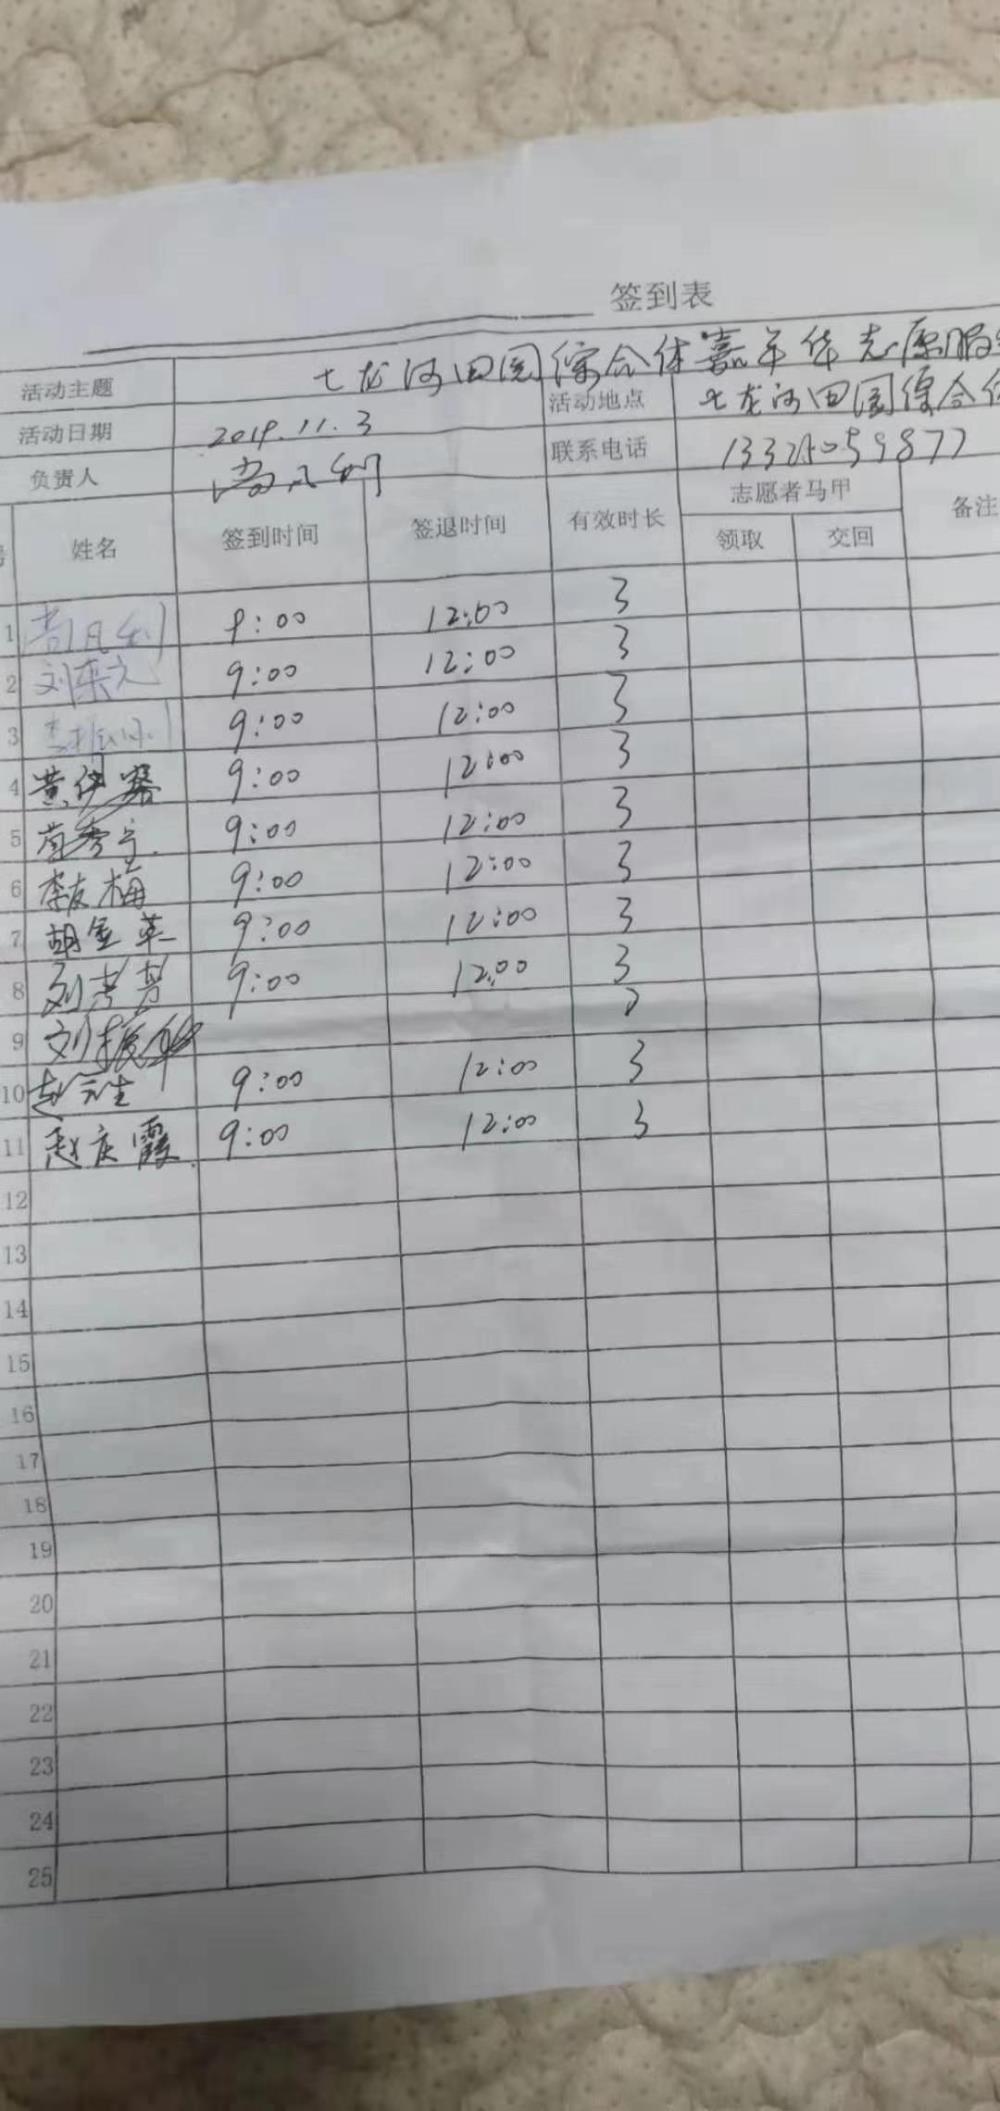 签到表
活动主题 七龙河田园综合体嘉年华志愿服
活动日期 2019.11.3 活动地点 七龙河田园综合体
负责人 尚凡利 联系电话 13325059877
姓名 签到时间 签退时间 有效时长 志愿者马甲 备注
领取 交回
1 尚凡利 9:00 12:00 3
2 刘荣之 9:00 12:00 3
3 9:00 12:00 3
4 黄 9:00 12:00 3
5 9:00 12:00 3
6 李友梅 9:00 12:00 3
7 胡金英 9:00 12:00 3
8 刘芳 9:00 12:00 3
9 刘振华
10 赵生 9:00 12:00 3
11 赵庆霞 9:00 12:00 3
12
13
14
15
16
17
18
19
20
21
22
23
24
25